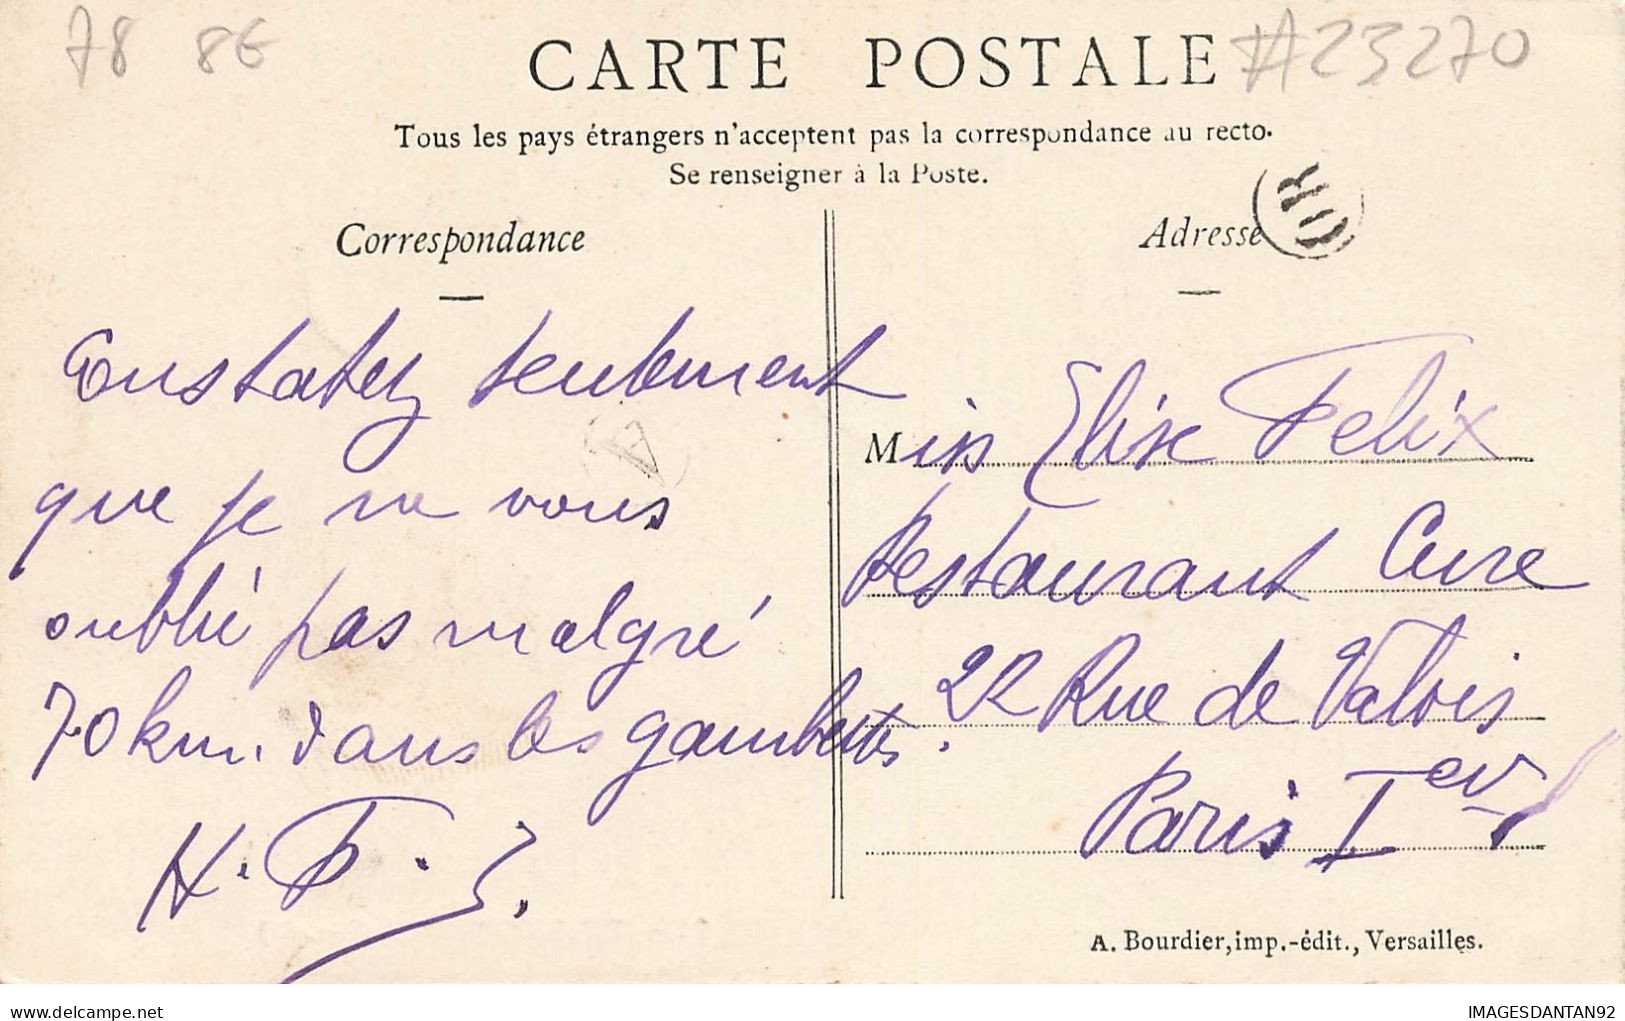 78 86 #23270
CARTE POSTALE
Tous les pays étrangers n'acceptent pas la correspondance au recto.
Se renseigner à la Poste.
Correspondance
Constatez seulement
que je ne vous
oublie pas malgré
70 km. dans les gambettes.
H. F.
Adresse
OR
Miss Elise Felix
Restaurant Cure
22 Rue de Valois
Paris Ier
A. Bourdier, imp.-édit., Versailles.
delcampe.net
IMAGESDANTAN92